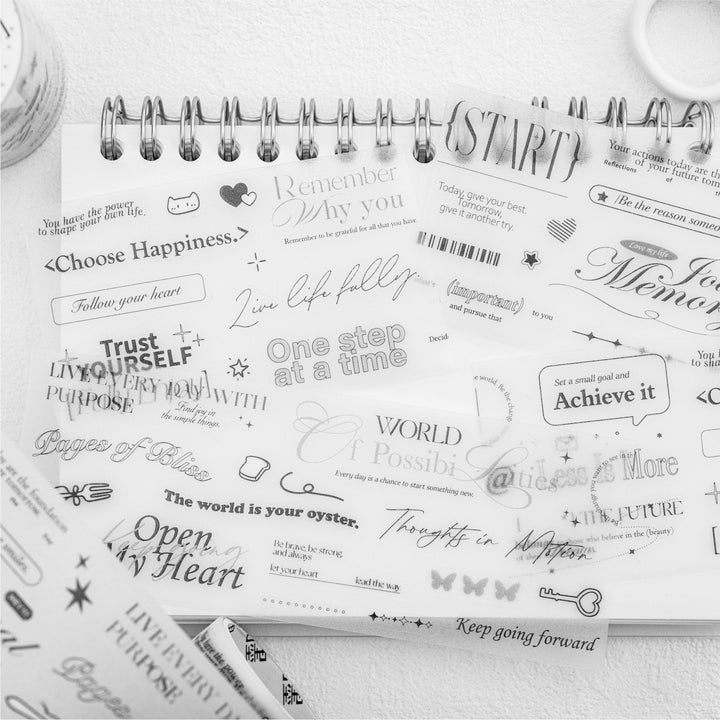 {START}
Your actions today are the
of your future tom
Reflections of
Remember
Why you
Remember to be grateful for all that you have.
Today, give your best.
Tomorrow,
give it another try.
(Be the reason someo
You have the power
to shape your own life.
<Choose Happiness.>
Love my life
Jou
Memor
Follow your heart
Live life fully.
(important)
and pursue that
to you
Trust
YOURSELF
One step
at a time
Decid
Set a small goal and
Achieve it
You h
to sha
<C
LIVE EVERY DAY WITH
PURPOSE
Find joy in
the simple things.
the world. Be the change
WORLD
Of Possibilities
Every day is a chance to start something new.
Pages of Bliss
Less Is More
THE FUTURE
who believe in the (beauty)
The world is your oyster.
Thoughts in Motion
Open
My Heart
Keep going
Be brave, be strong,
and always
let your heart
lead the way
Keep going forward
the foundation
tomorrow.
LIVE EVERY DAY
PURPOSE
Pages